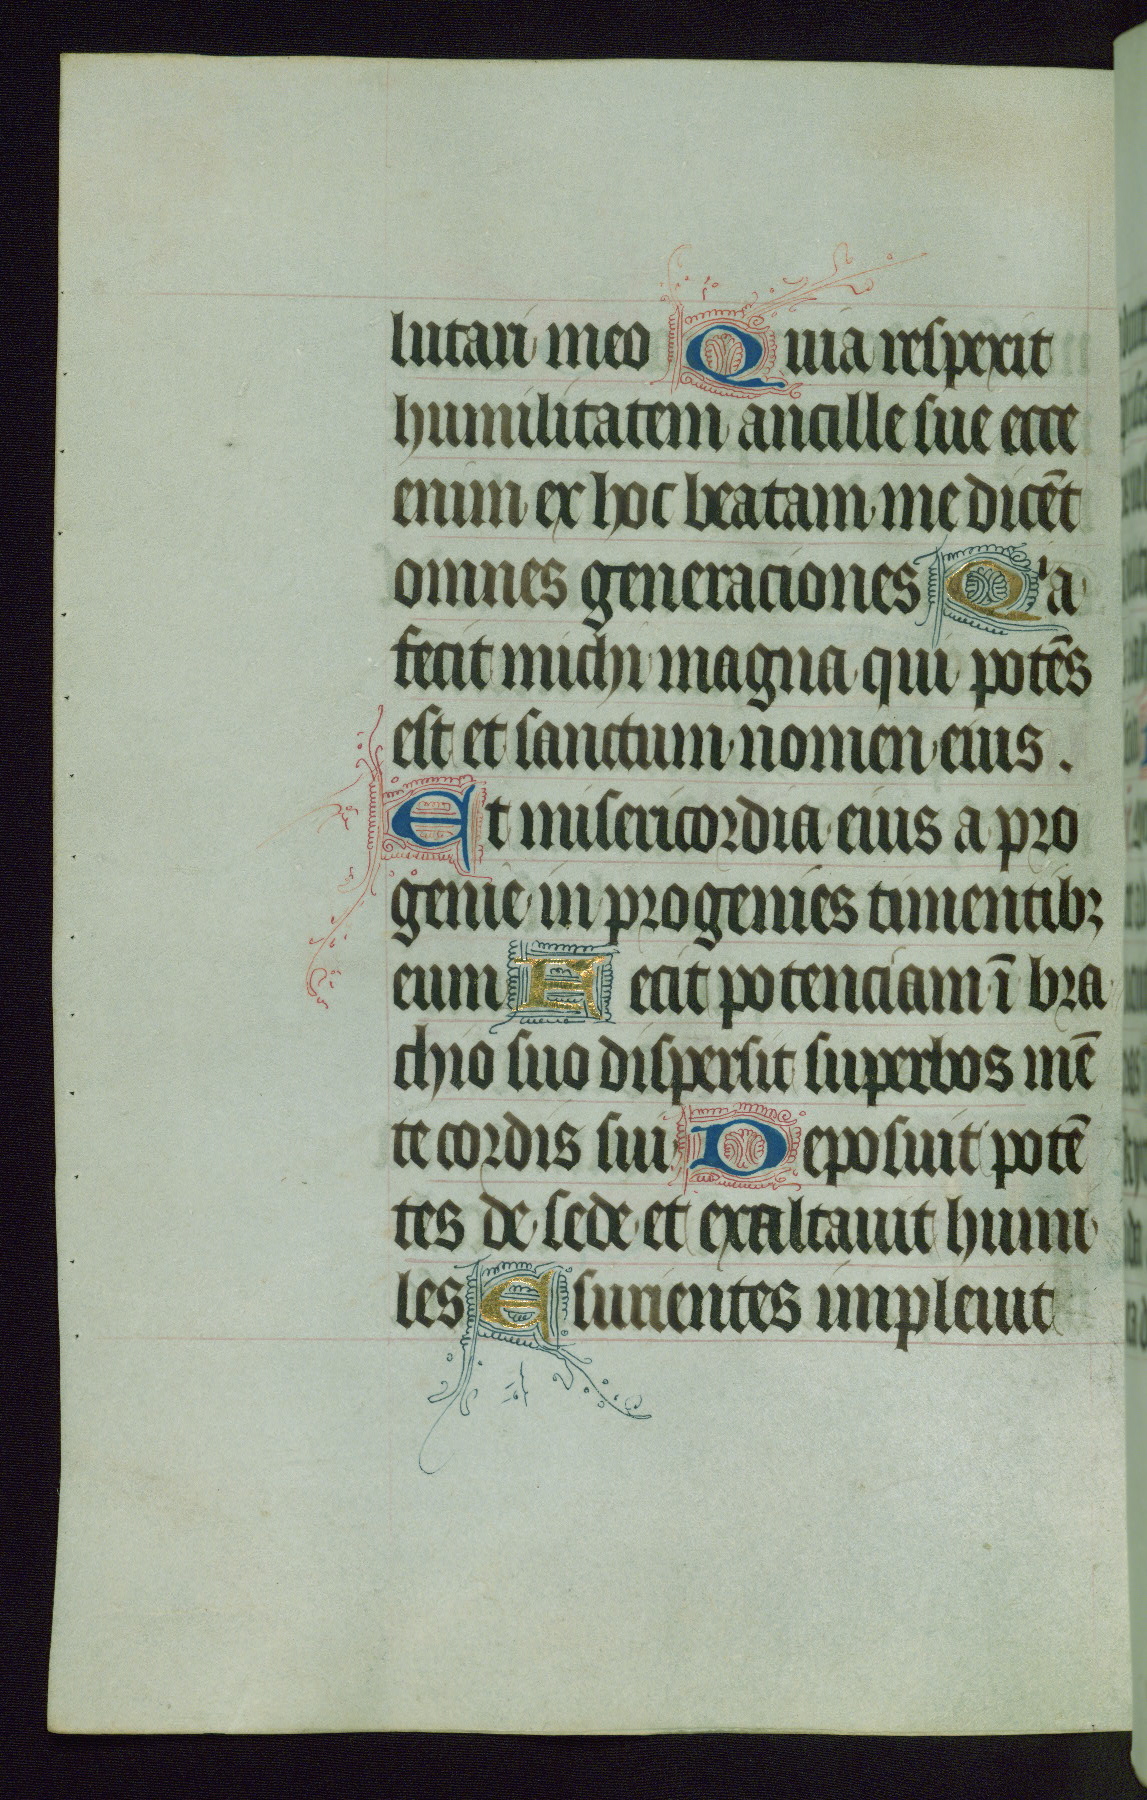 lutari meo Quia respexit
humilitatem ancille sue ecce
enim ex hoc beatam me dicēt
omnes generaciones Qⁱa
fecit michi magna qui potēs
est et sanctum nomen eius.
Et misericordia eius a pro
genie in progenies timentibꝫ
eum Fecit potenciam ī bra
chio suo dispersit superbos mē
te cordis sui Deposuit potē
tes de sede et exaltauit humi
les Esurientes impleuit